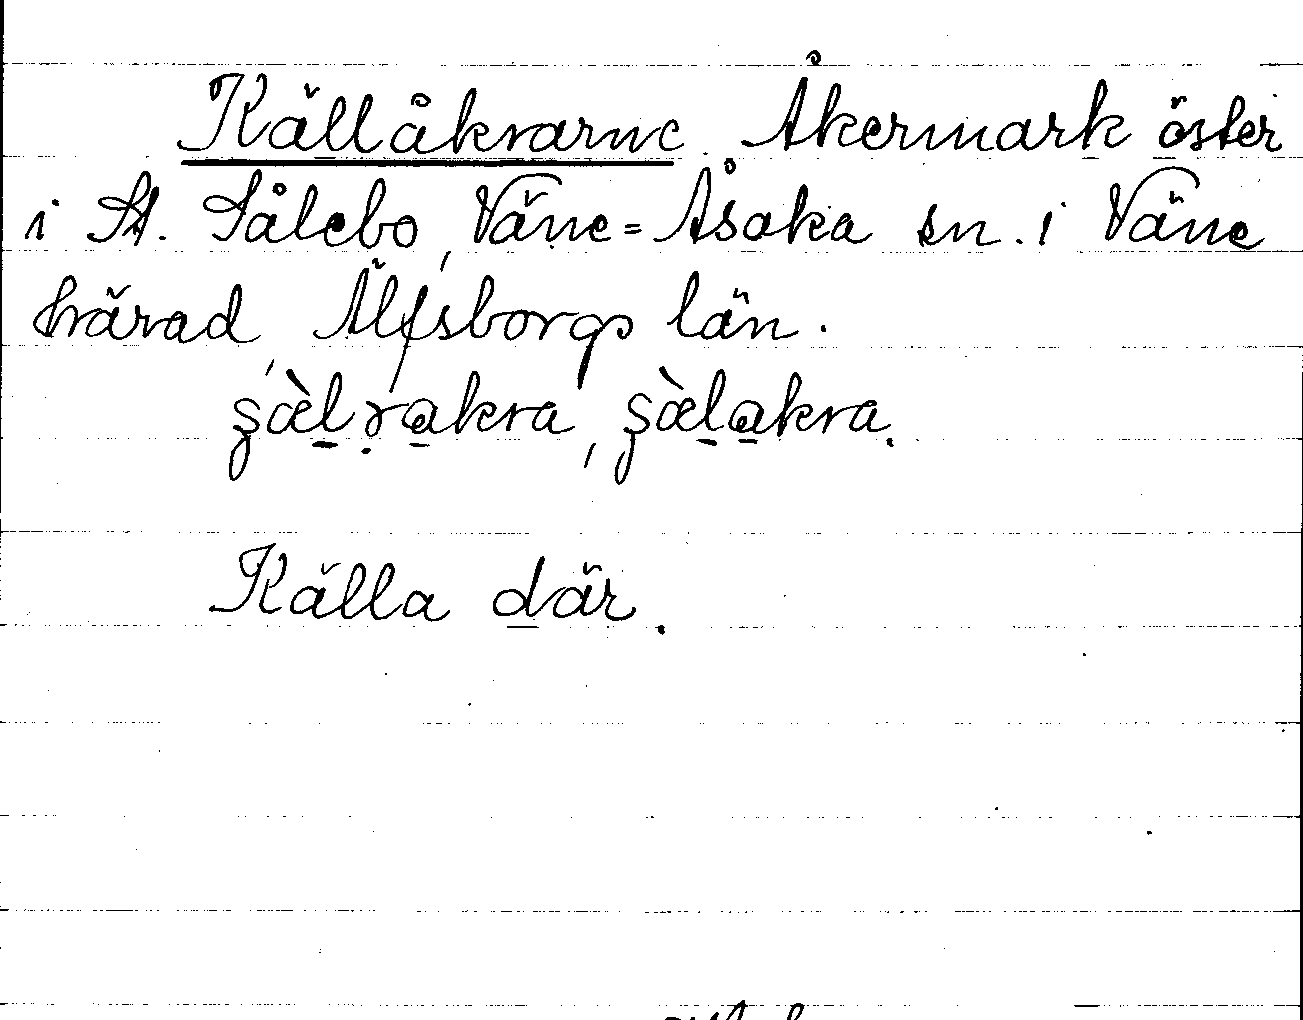 Källåkrarne. Åkermark öster
i St. Sålebo, Väne=Åsaka sn. i Väne
härad, Älfsborgs län.
ʂæ̀lrakra, ʂæ̀lakra.
Källa där.